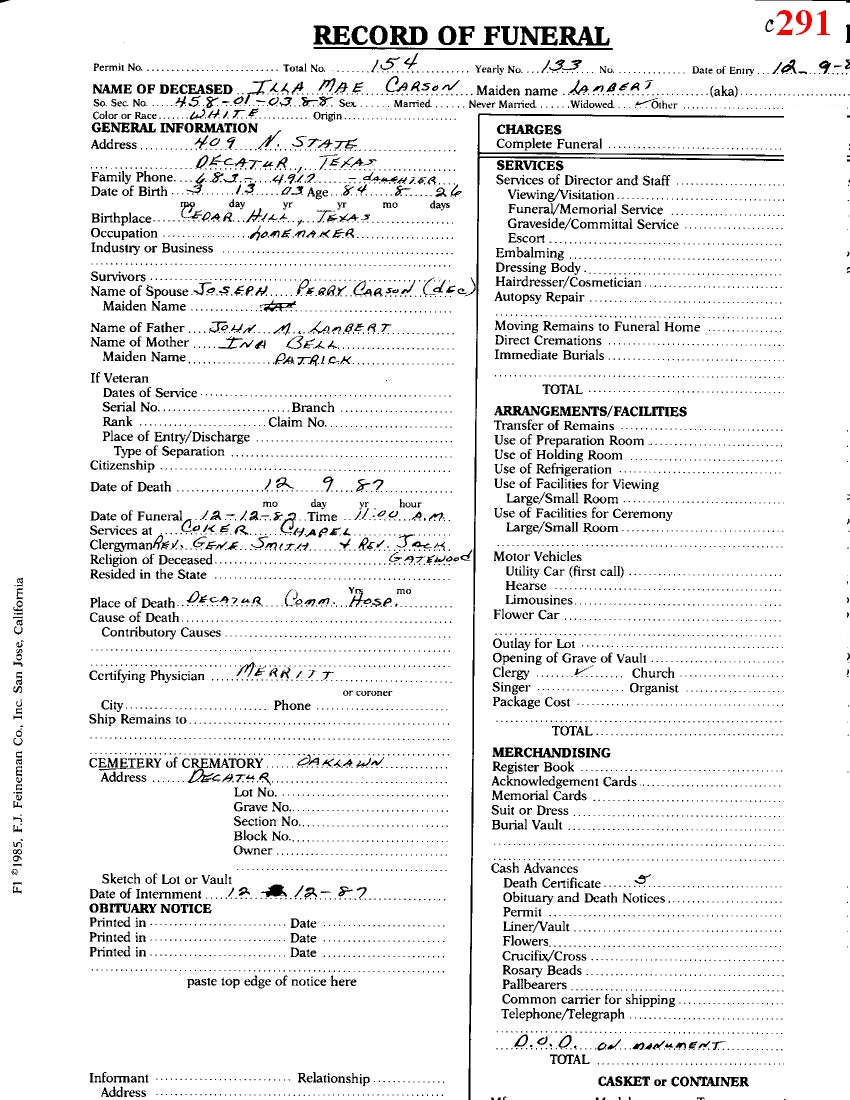 c291
RECORD OF FUNERAL
Permit No. Total No. 154 Yearly No. 133 No. Date of Entry 12-9-8
NAME OF DECEASED ILLA MAE CARSON Maiden name LAMBERT (aka)
So. Sec. No. 458-01-0388 Sex Married Never Married Widowed ✓ Other
Color or Race WHITE Origin
GENERAL INFORMATION
Address 409 N. STATE
DECATUR, TEXAS
Family Phone 683-4917 - DAUGHTER
Date of Birth 3 13 03 Age 84 8 26
mo day yr yr mo days
Birthplace CEDAR HILL, TEXAS
Occupation HOMEMAKER
Industry or Business
Survivors
Name of Spouse JOSEPH PERRY CARSON (dec)
Maiden Name
Name of Father JOHN M. LAMBERT
Name of Mother INA BELL
Maiden Name PATRICK
If Veteran
Dates of Service
Serial No. Branch
Rank Claim No.
Place of Entry/Discharge
Type of Separation
Citizenship
Date of Death 12 9 87
mo day yr hour
Date of Funeral 12-12-87 Time 11:00 A.M.
Services at COKER CHAPEL
Clergyman REV. GENE SMITH & REV. JACK
Religion of Deceased GATEWOOD
Resided in the State
Yrs mo
Place of Death DECATUR COMM. HOSP.
Cause of Death
Contributory Causes
Certifying Physician MERRITT
or coroner
City Phone
Ship Remains to
CEMETERY of CREMATORY OAKLAWN
Address DECATUR
Lot No.
Grave No.
Section No.
Block No.
Owner
Sketch of Lot or Vault
Date of Internment 12 12-87
OBITUARY NOTICE
Printed in Date
Printed in Date
Printed in Date
paste top edge of notice here
Informant Relationship
Address
CHARGES
Complete Funeral
SERVICES
Services of Director and Staff
Viewing/Visitation
Funeral/Memorial Service
Graveside/Committal Service
Escort
Embalming
Dressing Body
Hairdresser/Cosmetician
Autopsy Repair
Moving Remains to Funeral Home
Direct Cremations
Immediate Burials
TOTAL
ARRANGEMENTS/FACILITIES
Transfer of Remains
Use of Preparation Room
Use of Holding Room
Use of Refrigeration
Use of Facilities for Viewing
Large/Small Room
Use of Facilities for Ceremony
Large/Small Room
Motor Vehicles
Utility Car (first call)
Hearse
Limousines
Flower Car
Outlay for Lot
Opening of Grave of Vault
Clergy ✓ Church
Singer Organist
Package Cost
TOTAL
MERCHANDISING
Register Book
Acknowledgement Cards
Memorial Cards
Suit or Dress
Burial Vault
Cash Advances
Death Certificate 5
Obituary and Death Notices
Permit
Liner/Vault
Flowers
Crucifix/Cross
Rosary Beads
Pallbearers
Common carrier for shipping
Telephone/Telegraph
D.O.D. ON MONUMENT
TOTAL
CASKET or CONTAINER
F1 ©1985, F.J. Feineman Co., Inc. San Jose, California